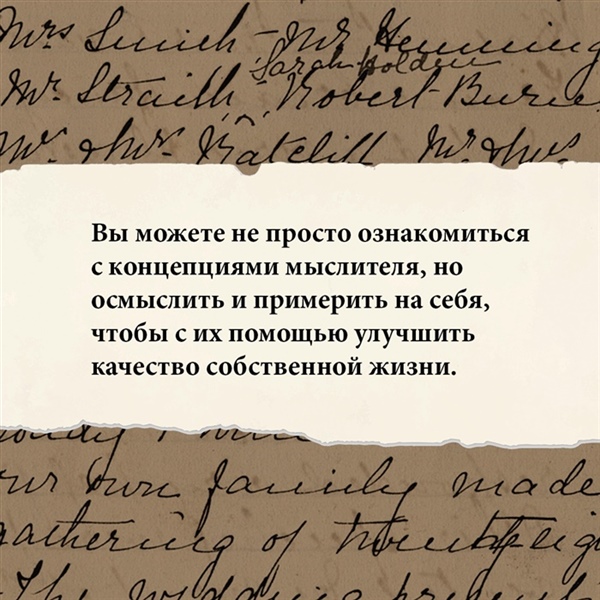 Mrs Smith - Mr Hemming
Sarah Holden
Mr. Straith, Robert Burne
Mr. & Mrs. Ratcliff Mr & Mrs
Вы можете не просто ознакомиться
с концепциями мыслителя, но
осмыслить и примерить на себя,
чтобы с их помощью улучшить
качество собственной жизни.
our own family made
gathering of
The wedding present